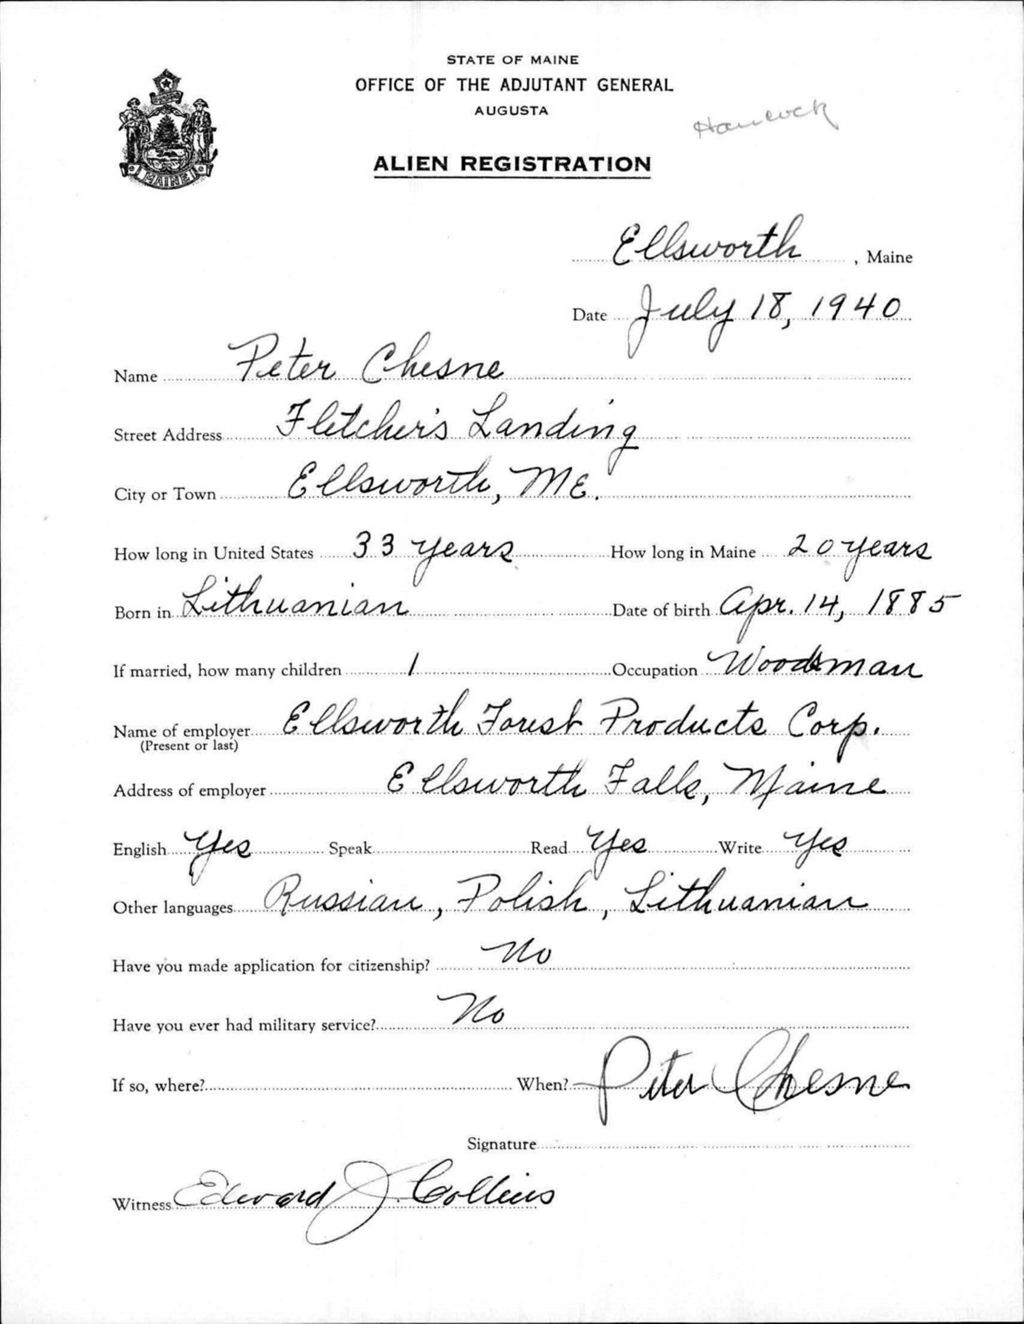 STATE OF MAINE
OFFICE OF THE ADJUTANT GENERAL
AUGUSTA
Hancock
ALIEN REGISTRATION
MAINE
Ellsworth, Maine
Date July 18, 1940
Name Peter Chesne
Street Address Fletcher's Landing
City or Town Ellsworth, ME.
How long in United States 33 years How long in Maine 20 years
Born in Lithuanian Date of birth Apr. 14, 1885
If married, how many children 1 Occupation Woodsman
Name of employer Ellsworth Forest Products Corp.
(Present or last)
Address of employer Ellsworth Falls, Maine
English Yes Speak Read Yes Write Yes
Other languages Russian, Polish, Lithuanian
Have you made application for citizenship? No
Have you ever had military service? No
If so, where? When?
Peter Chesne
Signature
Witness Edward J. Collins